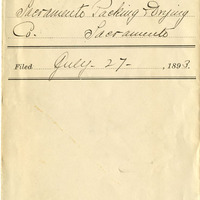 Sacramento Packing & Drying
Co. Sacramento
Filed July - 27 - , 1893.